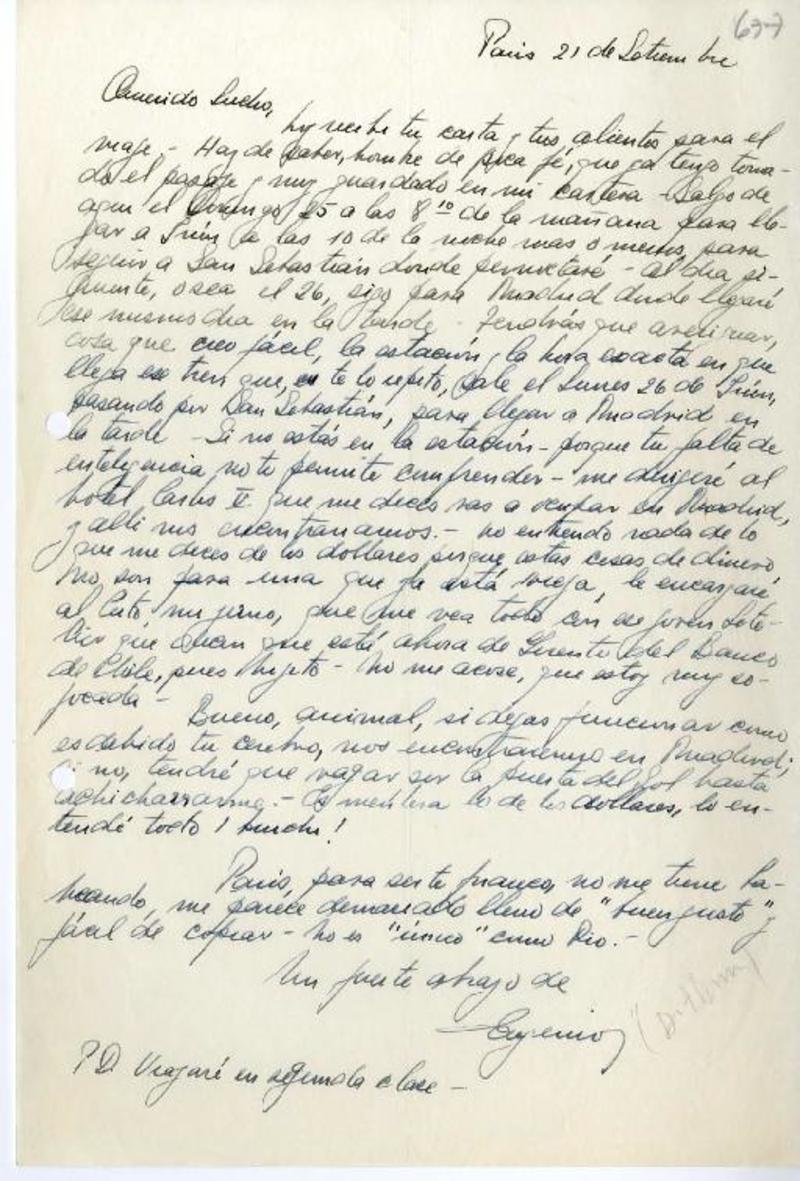 (697)
Paris 21 de Setiembre
Querido Lucho,
hoy recibí tu carta y tus alientos para el
viaje.- Haz de saber, hombre de poca fé, que ya tengo toma-
do el pasaje y muy guardado en mi cartera - Salgo de
aqui el Domingo 25 a las 8 10 de la mañana para lle-
gar a Irún a las 10 de la noche mas o menos, para
seguir a San Sebastián donde pernoctaré - Al día si-
guiente, o sea el 26, sigo para Madrid donde llegaré
ese mismo dia en la tarde - Tendrás que averiguar,
cosa que creo fácil, la estación y la hora exacta en que
llega ese tren que, te lo repito, sale el Lunes 26 de Irún,
pasando por San Sebastián, para llegar a Madrid en
la tarde - Si no estás en la estación - porque tu falta de
inteligencia no te permite comprender - me dirigiré al
hotel Carlos V que me dices vas a ocupar en Madrid,
y alli nos encontraremos.- No entiendo nada de lo
que me dices de los dollares porque estas cosas de dinero
no son para una que ya está vieja, le encargaré
al mi yerno, que me vea todo con ese joven Lete-
lier que que está ahora de Gerente del Banco
de Chile, pues hijito - No me acose, que estoy muy so-
focada -
Bueno, animal, si dejas funcionar como
es debido tu cerebro, nos encontraremos en Madrid;
si no, tendré que vagar por la puerta del Sol hasta
achicharrarme.- Es mentira lo de los dollares, lo en-
tendí todo!
Paris, para serte franco, no me tiene ba-
beando, me parece demasiado lleno de "buen gusto" y
fácil de copiar - No es "único" como Rio.-
Un fuerte abrazo de
Eugenio
(Dittborn)
P.D. Viajaré en segunda clase -